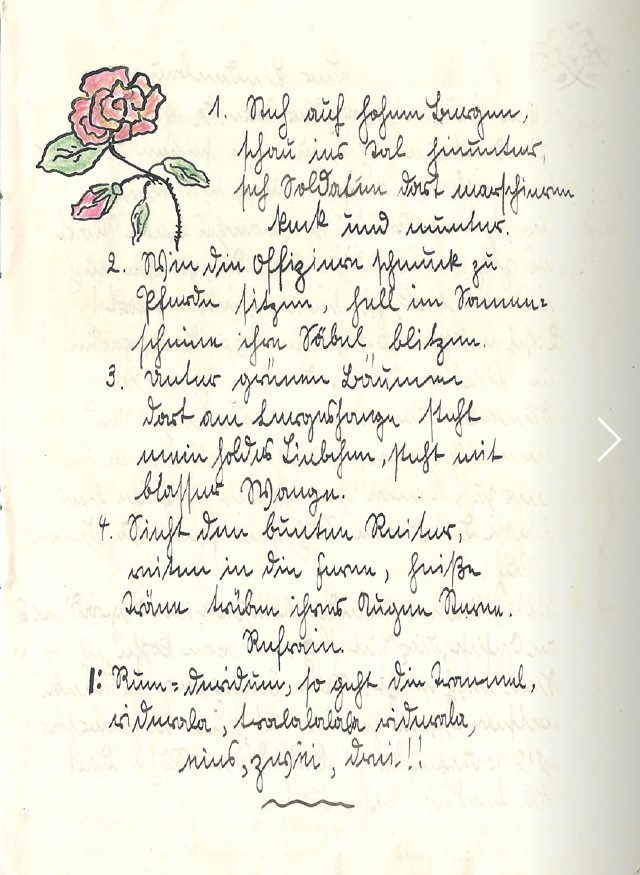 1. Steh auf hohem Berge,
schau ins Tal hinunter,
seh Soldaten dort marschieren
keck und munter.
2. Wie die Offiziere schmuck zu
Pferde sitzen, hell im Sonnen=
scheine ihre Säbel blitzen.
3. Unter grünen Bäumen
dort am Bergeshange steht
mein holdes Liebchen, steht mit
blasser Wange.
4. Sieht den bunten Reiter,
reiten in die Ferne, heiße
Träne trüben ihres Auges Sterne.
Refrain.
|: Rum=deridum, so geht die Trommel,
riderala, tralalalala riderala,
eins, zwei, drei!!